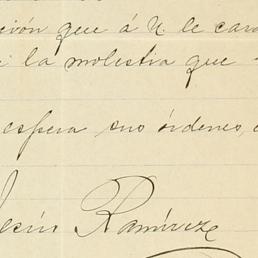 ción que á U. le cara
la molestia que
espera sus órdenes,
Jesús Ramírez